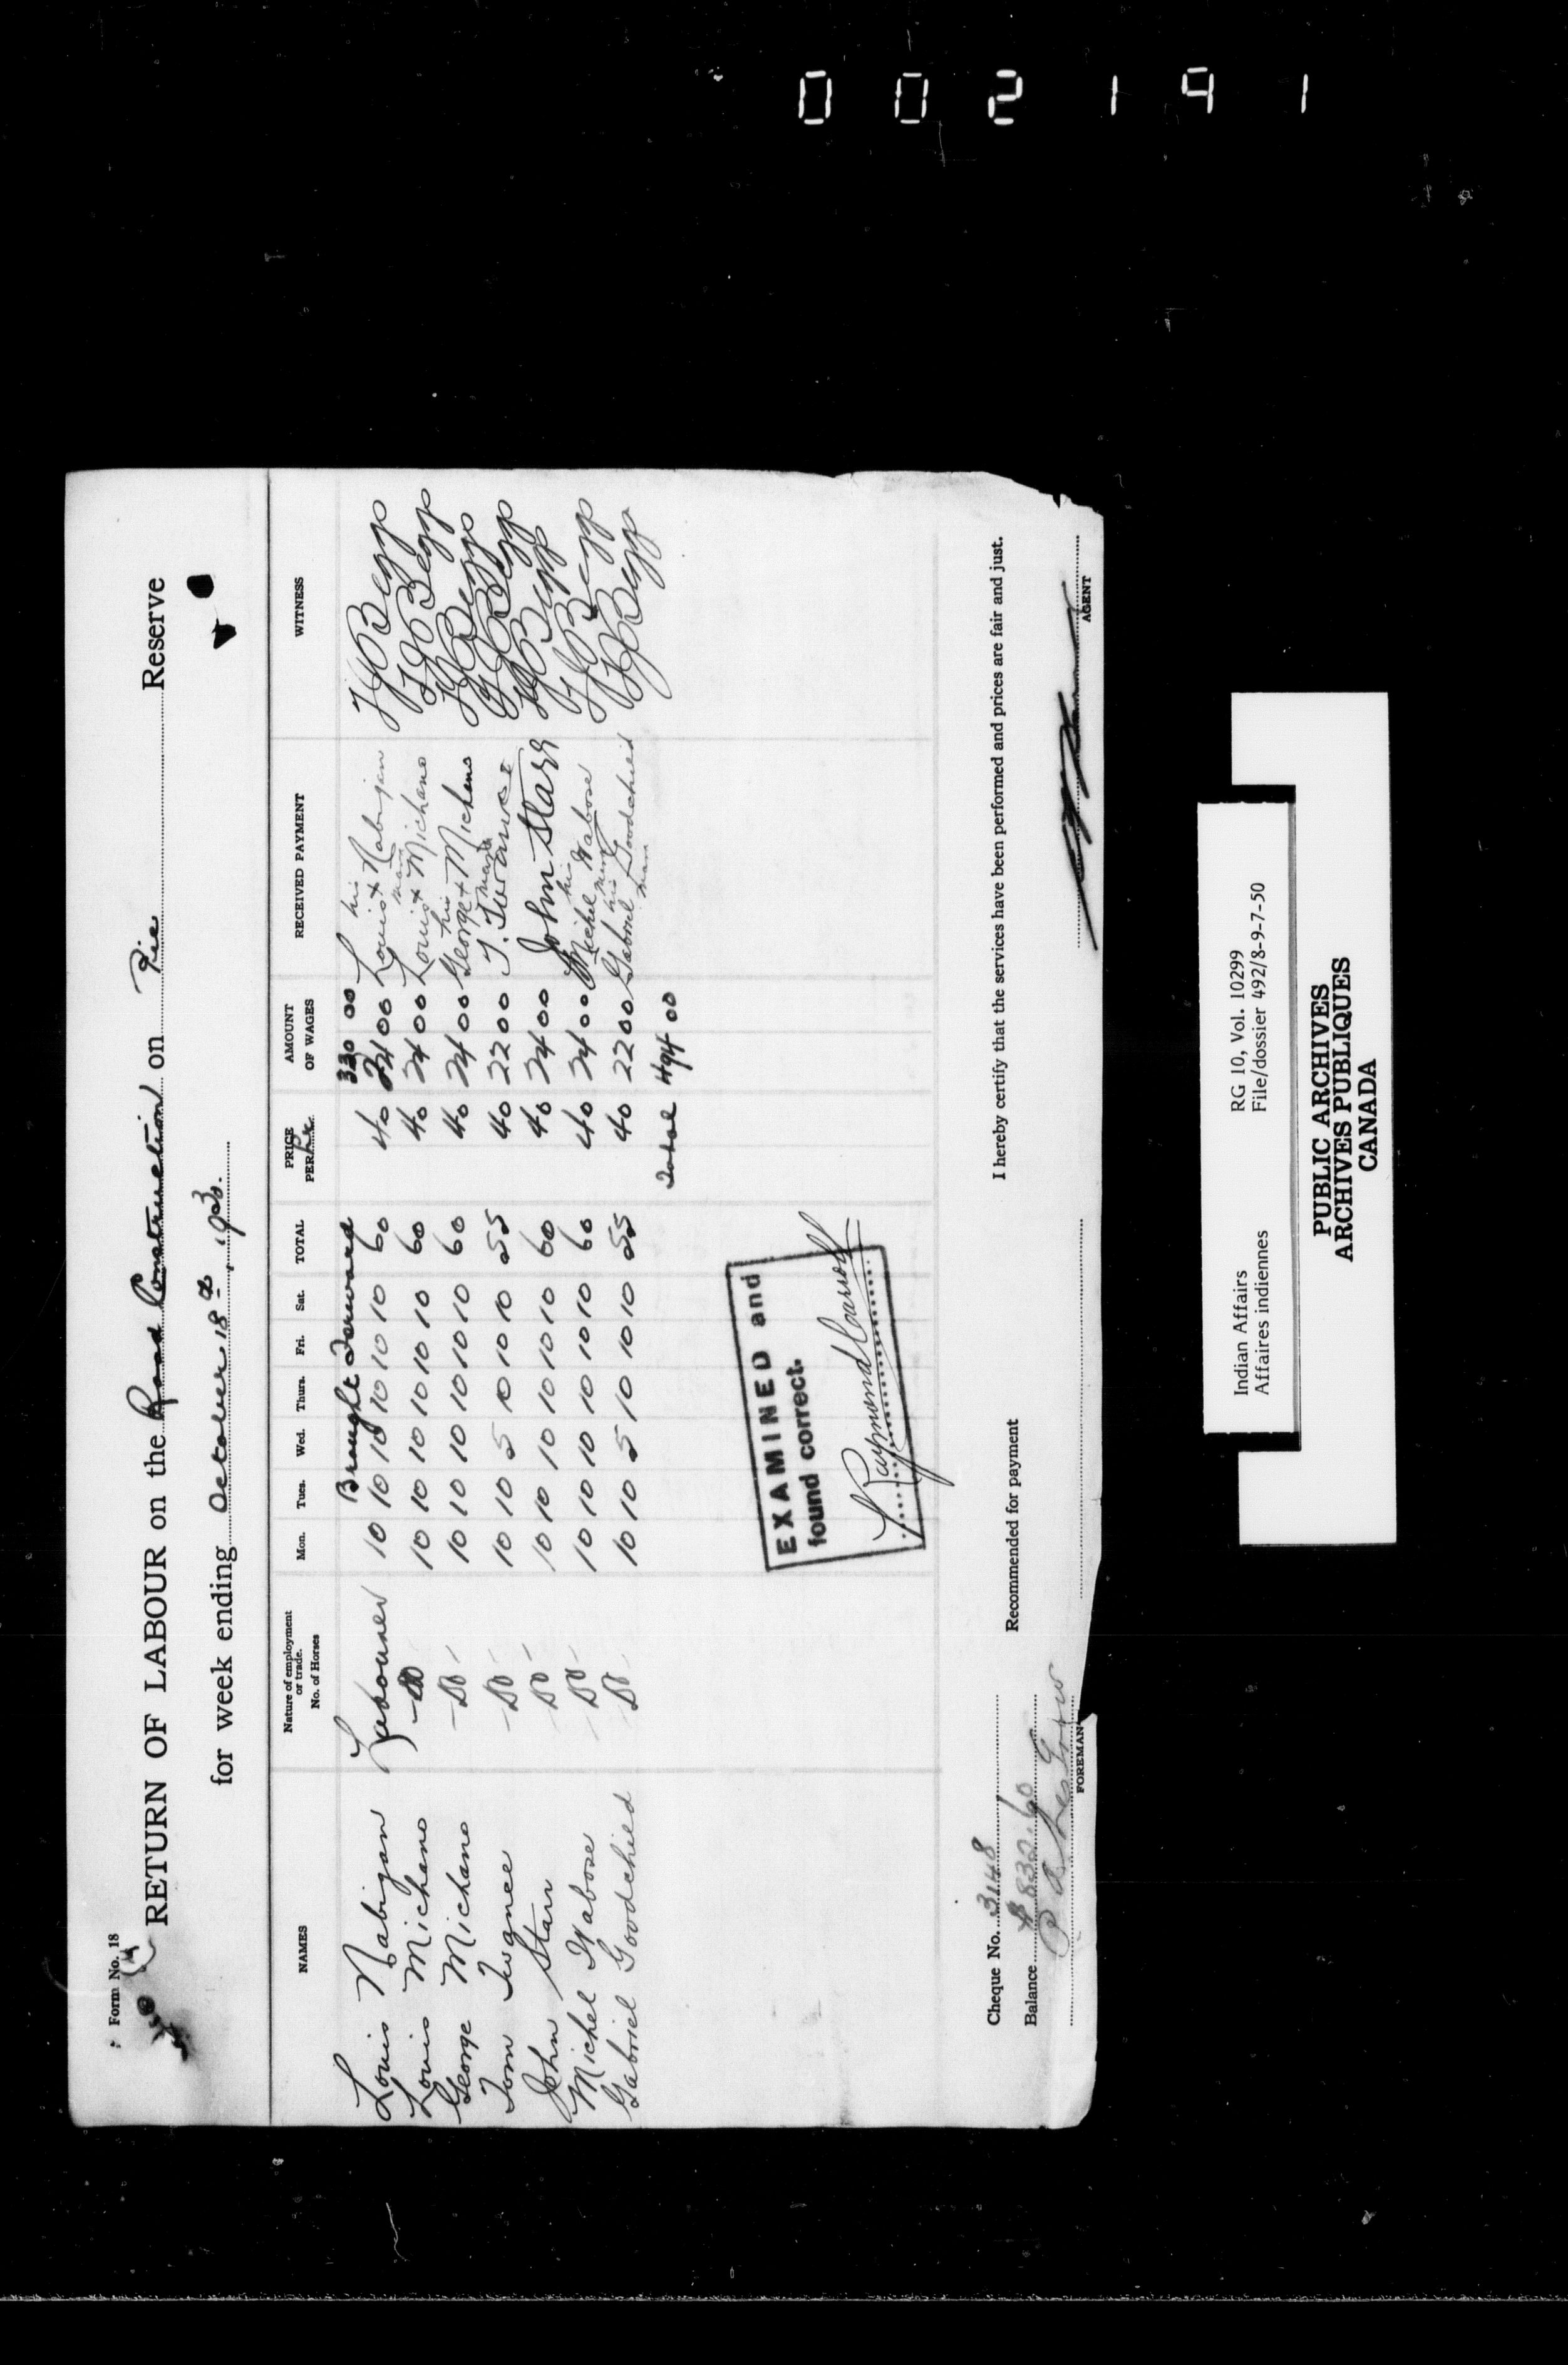 002191
Form No. 18
RETURN OF LABOUR on the Road Construction on Pic Reserve
for week ending October 18th, 1930.
NAMES Nature of employment or trade. No. of Horses Mon. Tues. Wed. Thurs. Fri. Sat. TOTAL PRICE PER hr AMOUNT OF WAGES RECEIVED PAYMENT WITNESS
Brought Forward 330 00
Louis Nabigan Labourer 10 10 10 10 10 10 60 40 24 00 Louis his x mark Nabigan Begg
Louis Michano - Do 10 10 10 10 10 10 60 40 24 00 Louis x Michano Begg
George Michano - Do - 10 10 10 10 10 10 60 40 24 00 George his x mark Michano Begg
Tom Twance - Do - 10 10 5 10 10 10 55 40 22 00 T. Twance Begg
John Starr - Do - 10 10 10 10 10 10 60 40 24 00 John Starr Begg
Michel Wabose - Do - 10 10 10 10 10 10 60 40 24 00 Michel his mark Wabose Begg
Gabriel Goodchild Do 10 10 5 10 10 10 55 40 22 00 Gabriel his mark Goodchild Begg
Total 494 00
EXAMINED and
found correct.
Raymond Carroll
Cheque No. 3148 I hereby certify that the services have been performed and prices are fair and just.
Balance $832.60 Recommended for payment
FOREMAN AGENT
Indian Affairs RG 10, Vol. 10299
Affaires indiennes File/dossier 492/8-9-7-50
PUBLIC ARCHIVES
ARCHIVES PUBLIQUES
CANADA